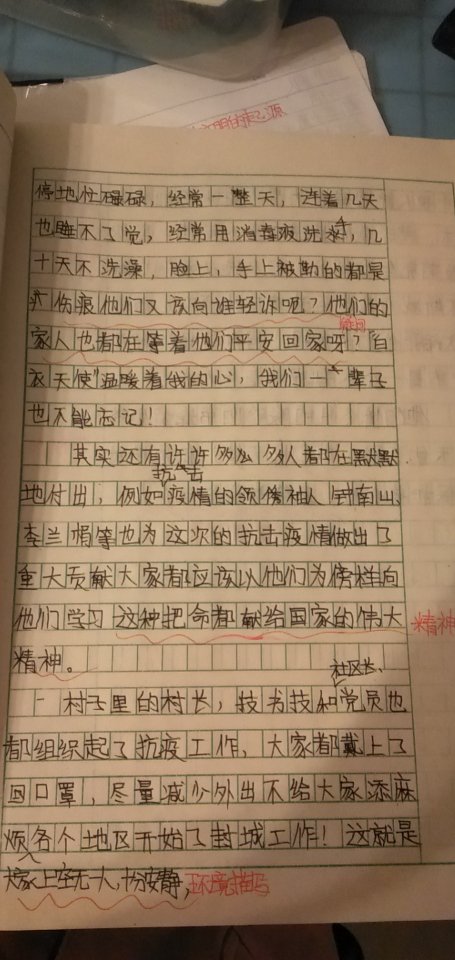 明的起源
停地忙碌碌，经常一整天，连着几天
也睡不了觉，经常用消毒液洗手，几
十天不洗澡，脸上，手上被勒的都是
伤痕他们又该向谁轻诉呢？他们的
疑问
家人也都在等着他们平安回家呀？白
衣天使"温暖着我的心，我们一辈子
也不能忘记！
其实还有许许多多么多人都在默默
抗击
地付出，例如疫情的领傍袖人钟南山、
李兰娟等也为这次的抗击疫情做出了
重大贡献大家都应该以他们为傍样向
他们学习这种把命都献给国家的伟大
精神
精神。
社区长、
一村子里的村长，技书技和党员也
都组织起了抗疫工作，大家都戴上了
口罩，尽量减少外出不给大家添麻
烦各个地区开始了封城工作！这就是
上空无一人，十分安静，环境描写